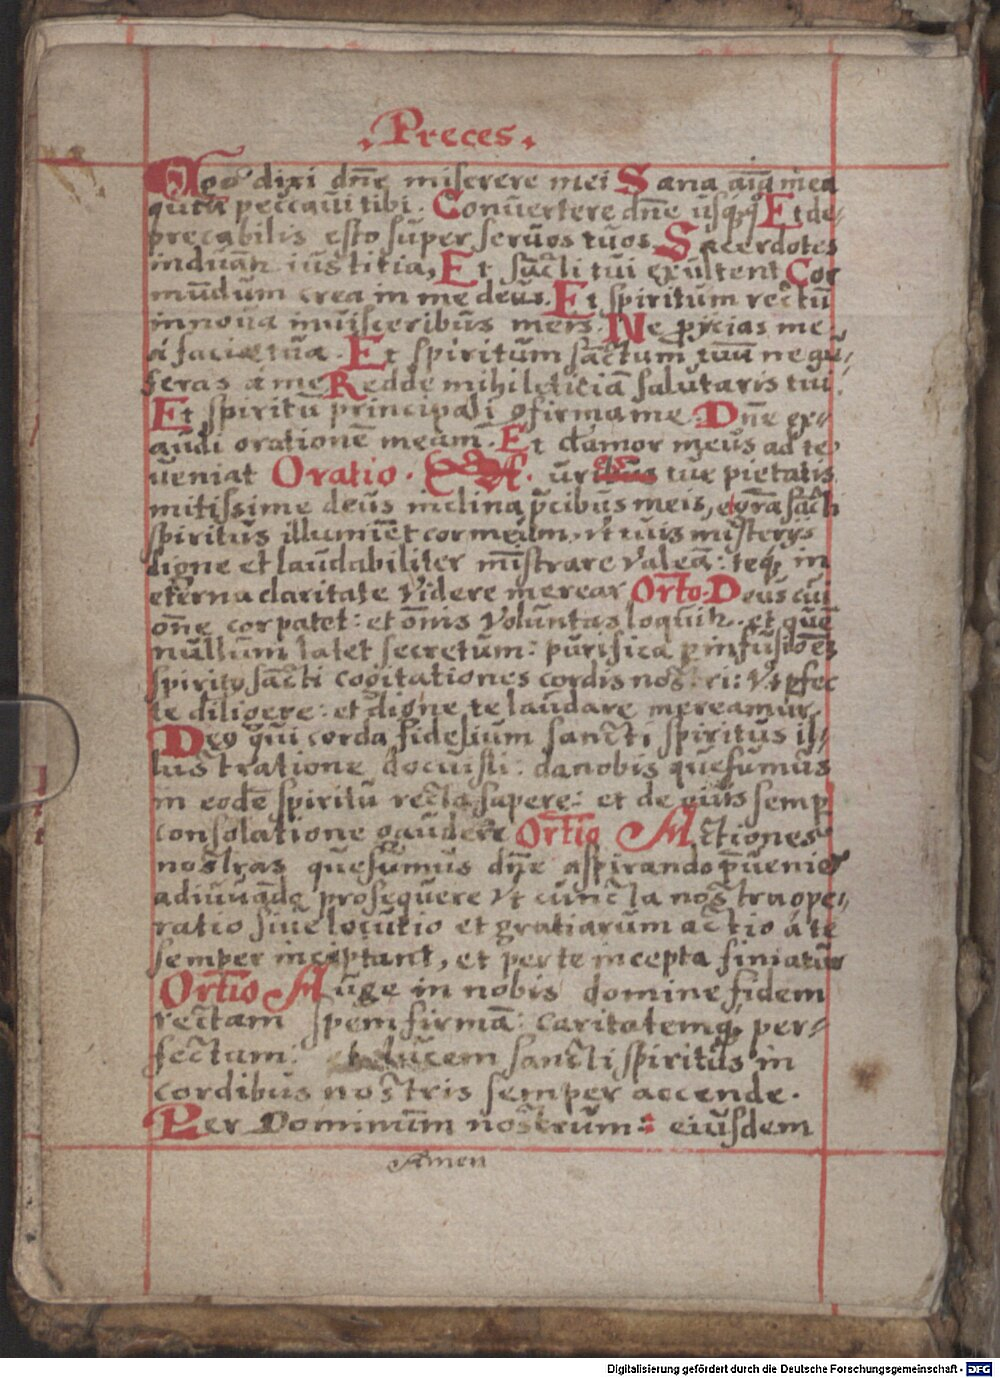 .Preces.
Ego dixi dñe miserere mei Sana aĩã mea
quia peccaui tibi. Conuertere dñe usq̃q̃ Et de-
precabilis esto super seruos tuos. Sacerdotes
induant iustitiã, Et sãcti tui exultent Cor
mũdum crea in me deus. Et spiritum rectũ
innoua in uisceribus meis. Ne proijcias me
á faciae tua. Et spiritum sanctum tuũ ne au-
feras a me Redde mihi leticiã salutaris tui.
Et spiritũ principali cõfirma me. Dñe ex-
audi orationẽ meam. Et clamor meus ad te
ueniat Oratio. tue pietatis
mitissime deus inclina p̃cibus meis, et grã sãcti
spiritus illumiẽt cor meum, vt tuis mysterijs
digne et laudabiliter mĩstrare valeã: teq́; in
eterna claritate videre merear Ortõ. Deus cui
oñe cor patet: et oñis voluntas loquitr. et quẽ
nullum latet secretum: purifica p infusiõem
spiritus sãcti cogitationes cordis nostri: vt pfec
te diligere: et digne te laudare mereamur.
Deus qui corda fidelium sancti spiritus il-
lustratione docuisti: da nobis quesumus
in eodẽ spiritu recta sapere: et de eius semp
consolatione gaudere Ortio Actiones
nostras quesumus dñe aspirando p̃ueni et
adiuuãdo prosequere vt cuncta nostra ope-
ratio siue locutio et gratiarum actio á te
semper incipiant, et per te incepta finiatur
Ortio Auge in nobis domine fidem
rectam spem firmã: caritatemq́; per-
fectam: et lucem sancti spiritus in
cordibus nostris semper accende.
Per Dominum nostrum: eiusdem
Amen
Digitalisierung gefördert durch die Deutsche Forschungsgemeinschaft - DFG